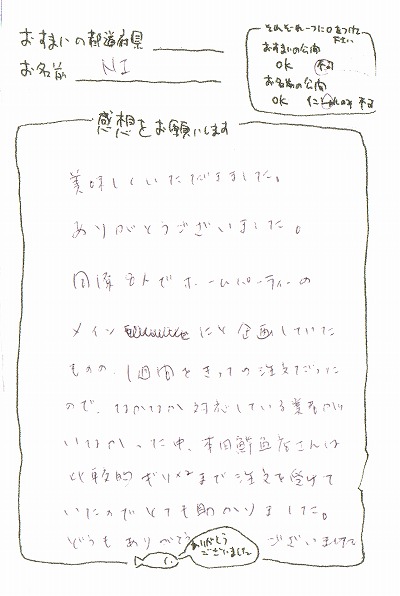 おすまいの都道府県
お名前 NI
それぞれ一つに○をつけて下さい
おすまいの公開
OK 不可
お名前の公開
OK イニシャルのみ 不可
感想をお願いします
美味しくいただきました。
ありがとうございました。
8人でホームパーティーの
メイン にと企画していた
ものの、1週間をきっての注文だった
ので、なかなか対応している業者が
いなかった中、本田鮮魚店さんは
比較的ギリギリまで注文を受けて
いたのでとても助かりました。
どうもありがとう ございました
ありがとうございました